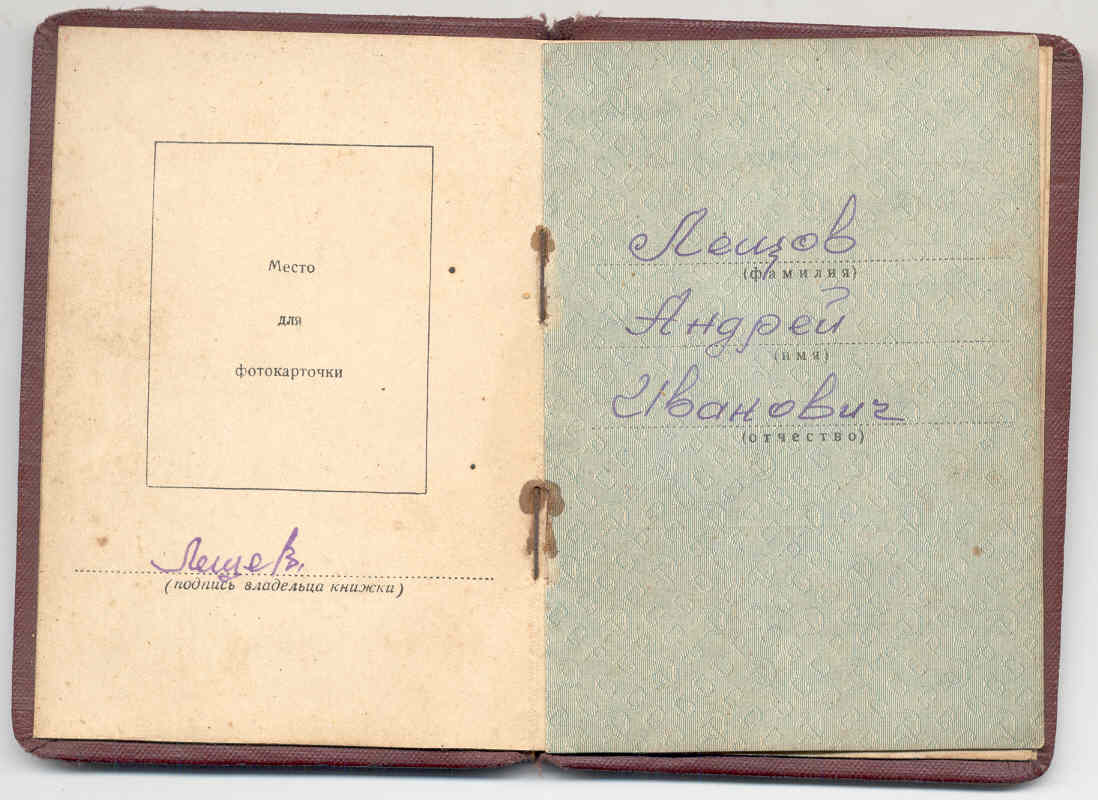 Место
для
фотокарточки
Лещев.
(подпись владельца книжки)
Лещов
(фамилия)
Андрей
(имя)
Иванович
(отчество)